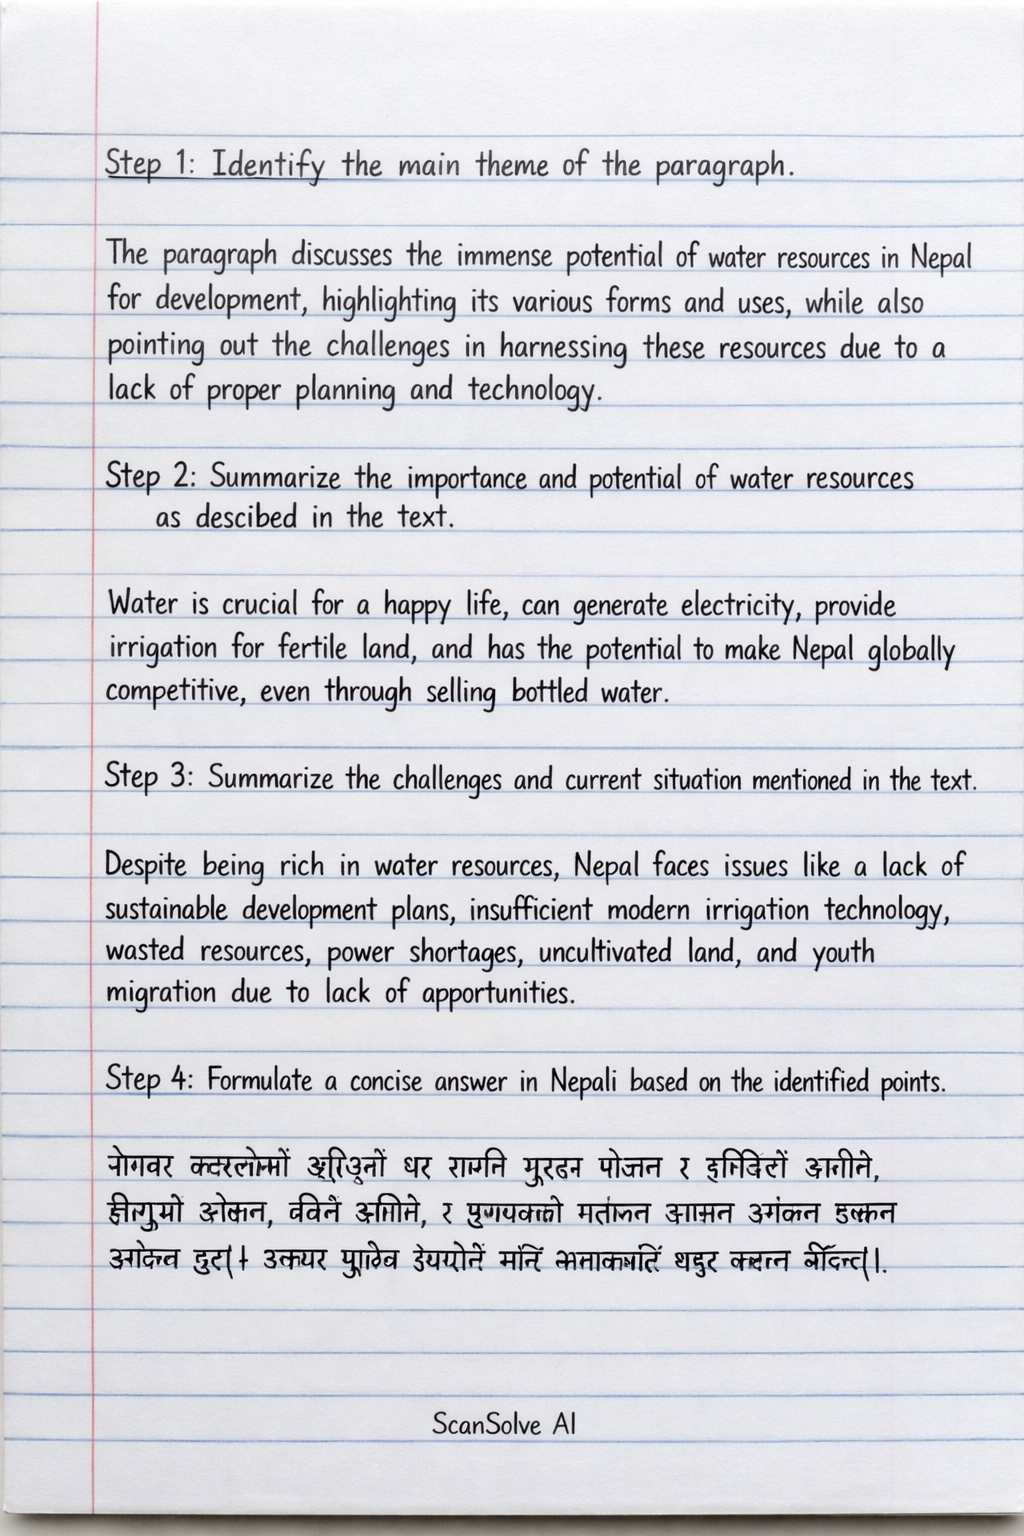 Step 1: Identify the main theme of the paragraph.
The paragraph discusses the immense potential of water resources in Nepal
for development, highlighting its various forms and uses, while also
pointing out the challenges in harnessing these resources due to a
lack of proper planning and technology.
Step 2: Summarize the importance and potential of water resources
as descibed in the text.
Water is crucial for a happy life, can generate electricity, provide
irrigation for fertile land, and has the potential to make Nepal globally
competitive, even through selling bottled water.
Step 3: Summarize the challenges and current situation mentioned in the text.
Despite being rich in water resources, Nepal faces issues like a lack of
sustainable development plans, insufficient modern irrigation technology,
wasted resources, power shortages, uncultivated land, and youth
migration due to lack of apportunities.
Step 4: Formulate a concise answer in Nepali based on the identified points.
ScanSolve AI